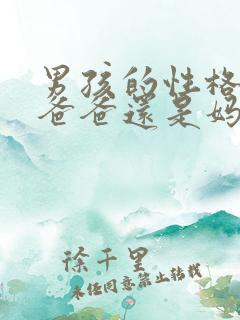 男孩的性格
爸爸還是妈
徐千里
未经同意禁止转载